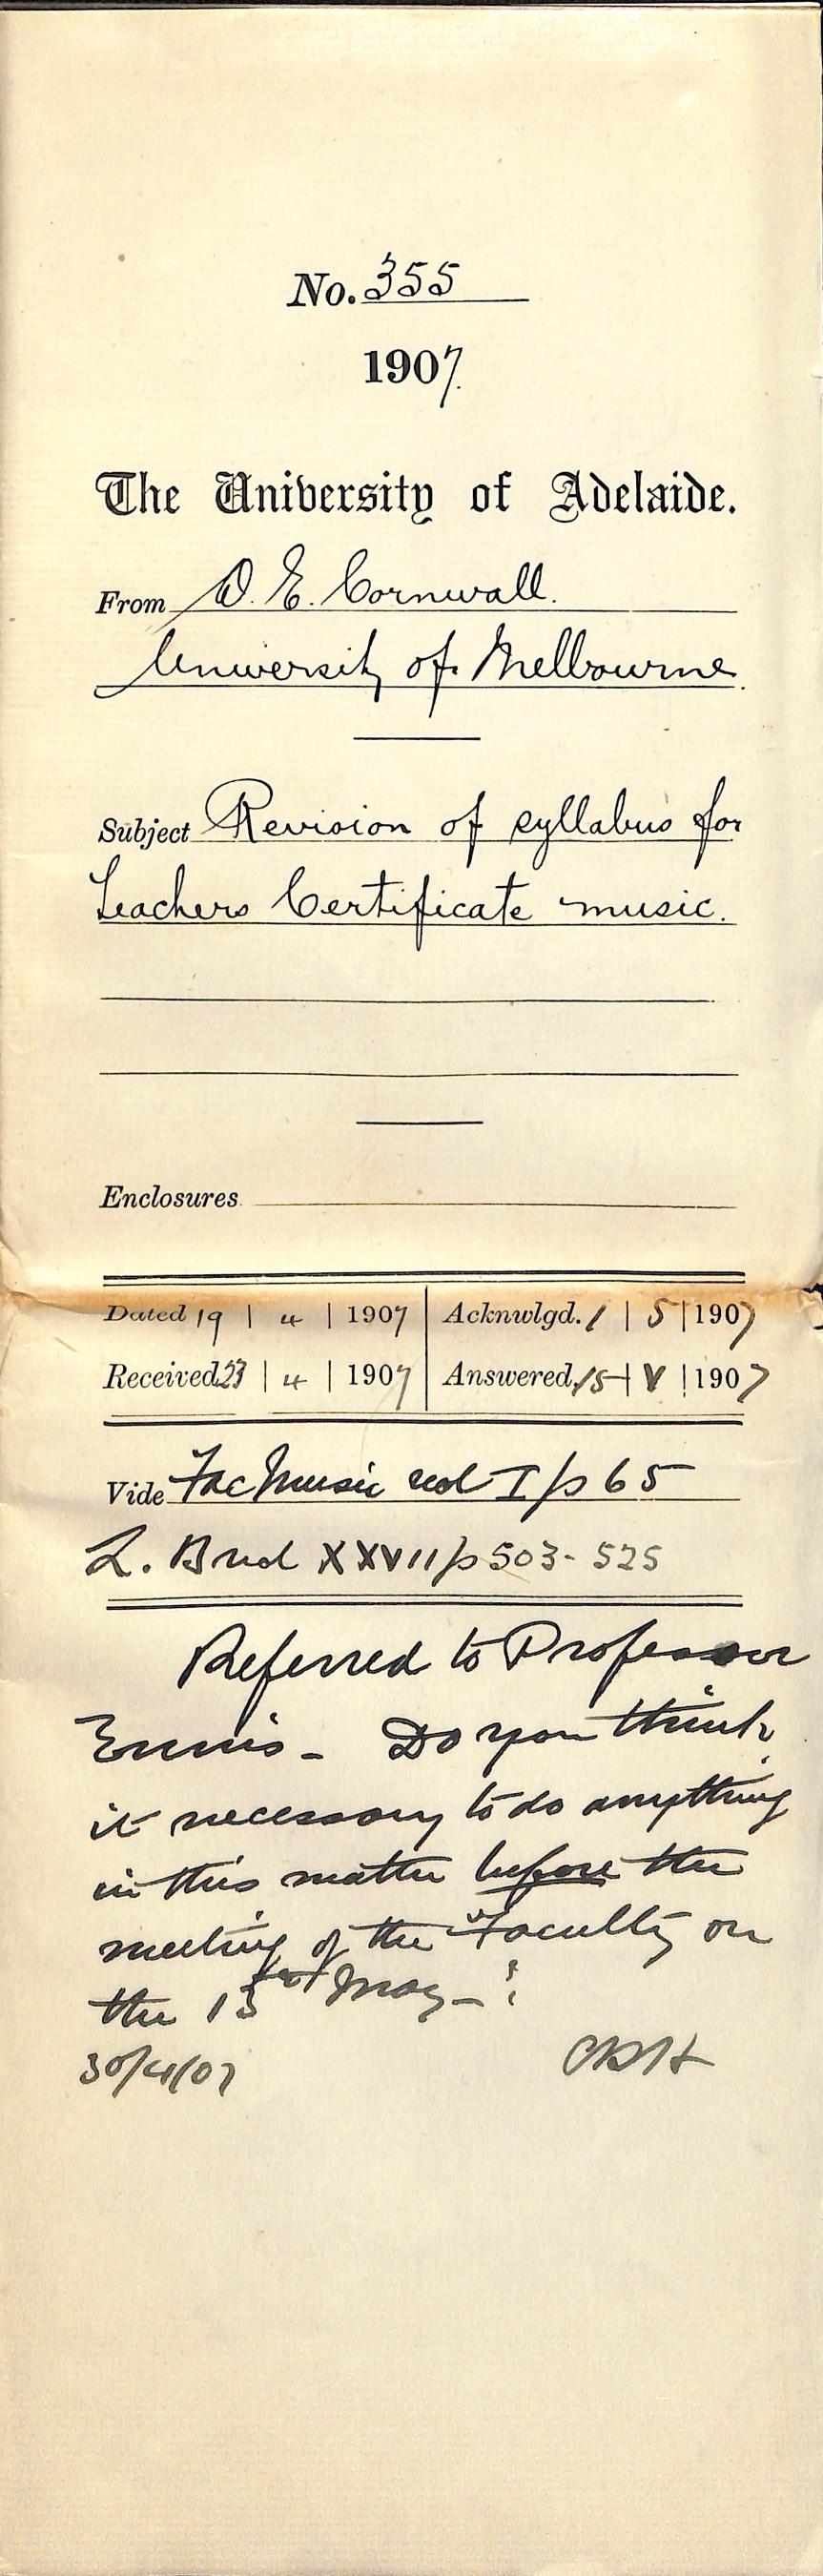 No. 355
1907
The University of Adelaide.
From O. E. Cornwall.
University of Melbourne.
Subject Revision of syllabus for
Teachers Certificate music.
Enclosures
Dated 19 | 4 | 1907 Acknwlgd. 1 | 5 | 1907
Received 23 | 4 | 1907 Answered 15 | V | 1907
Vide Fac Music vol I p 65
L. B vol XXVII p 503-525
Referred to Professor
Ennis - Do you think
it necessary to do anything
in this matter before the
meeting of the Faculty on
the May - ?
30/4/07 CRH